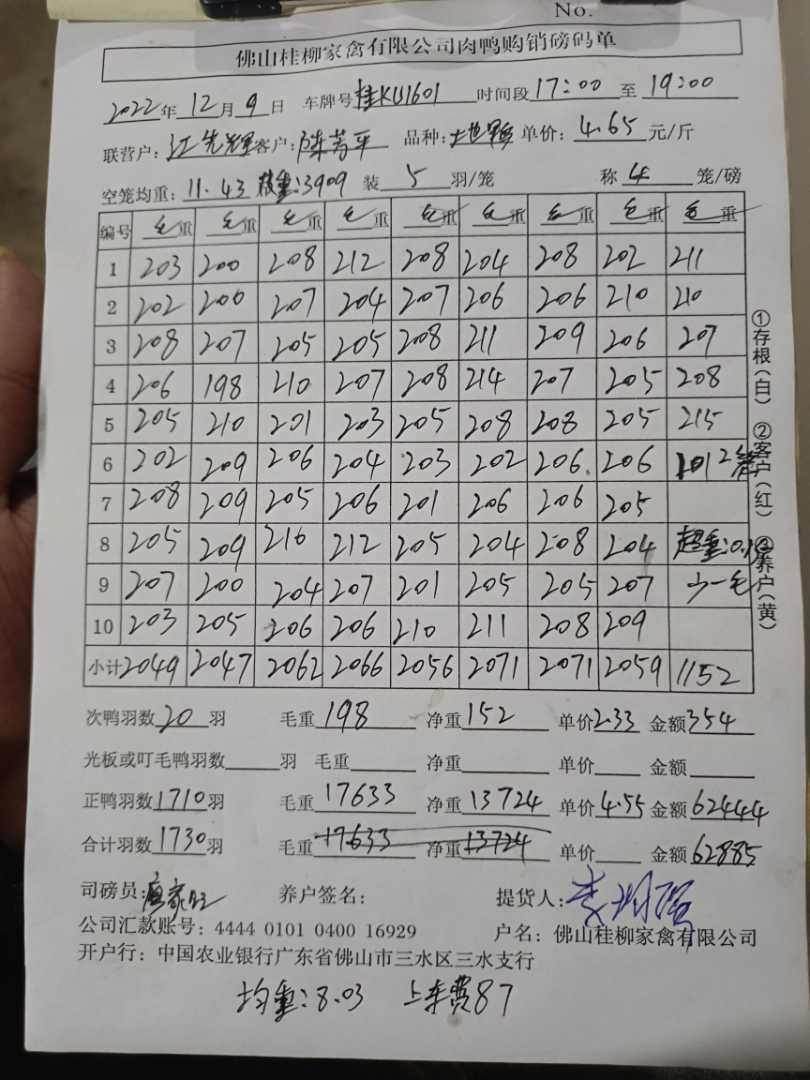 No.
佛山桂柳家禽有限公司肉鸭购销磅码单
2022年12月9日 车牌号桂KU1601 时间段17:00至19:00
联营户:江先辉 客户:陈芳平 品种:土地鸭 单价:4.65元/斤
空笼均重:11.43 皮重:3909 装5羽/笼 称4笼/磅
编号 毛重 毛重 毛重 毛重 毛重 毛重 毛重 毛重 毛重
1 203 200 208 212 208 204 208 202 211
2 202 200 207 204 207 206 206 210 210
3 208 207 205 205 208 211 209 206 207
4 206 198 210 207 208 214 207 205 208
5 205 210 201 203 205 208 208 205 215
6 202 209 206 204 203 202 206 206 101 2笼
7 208 209 205 206 201 206 206 205
8 205 209 216 212 205 204 208 204 超重:0.1
9 207 200 204 207 201 205 205 207 少一毛
10 203 205 206 206 210 211 208 209
小计 2049 2047 2062 2066 2056 2071 2071 2059 1152
①存根(白) ②客户(红) ③养户(黄)
次鸭羽数20羽 毛重198 净重152 单价2.33 金额354
光板或叮毛鸭羽数 羽 毛重 净重 单价 金额
正鸭羽数1710羽 毛重17633 净重13724 单价4.55 金额62444
合计羽数1730羽 毛重17633 净重13724 单价 金额62885
司磅员:廖家旺 养户签名: 提货人:
公司汇款账号:4444 0101 0400 16929 户名:佛山桂柳家禽有限公司
开户行:中国农业银行广东省佛山市三水区三水支行
均重:8.03 上车费87